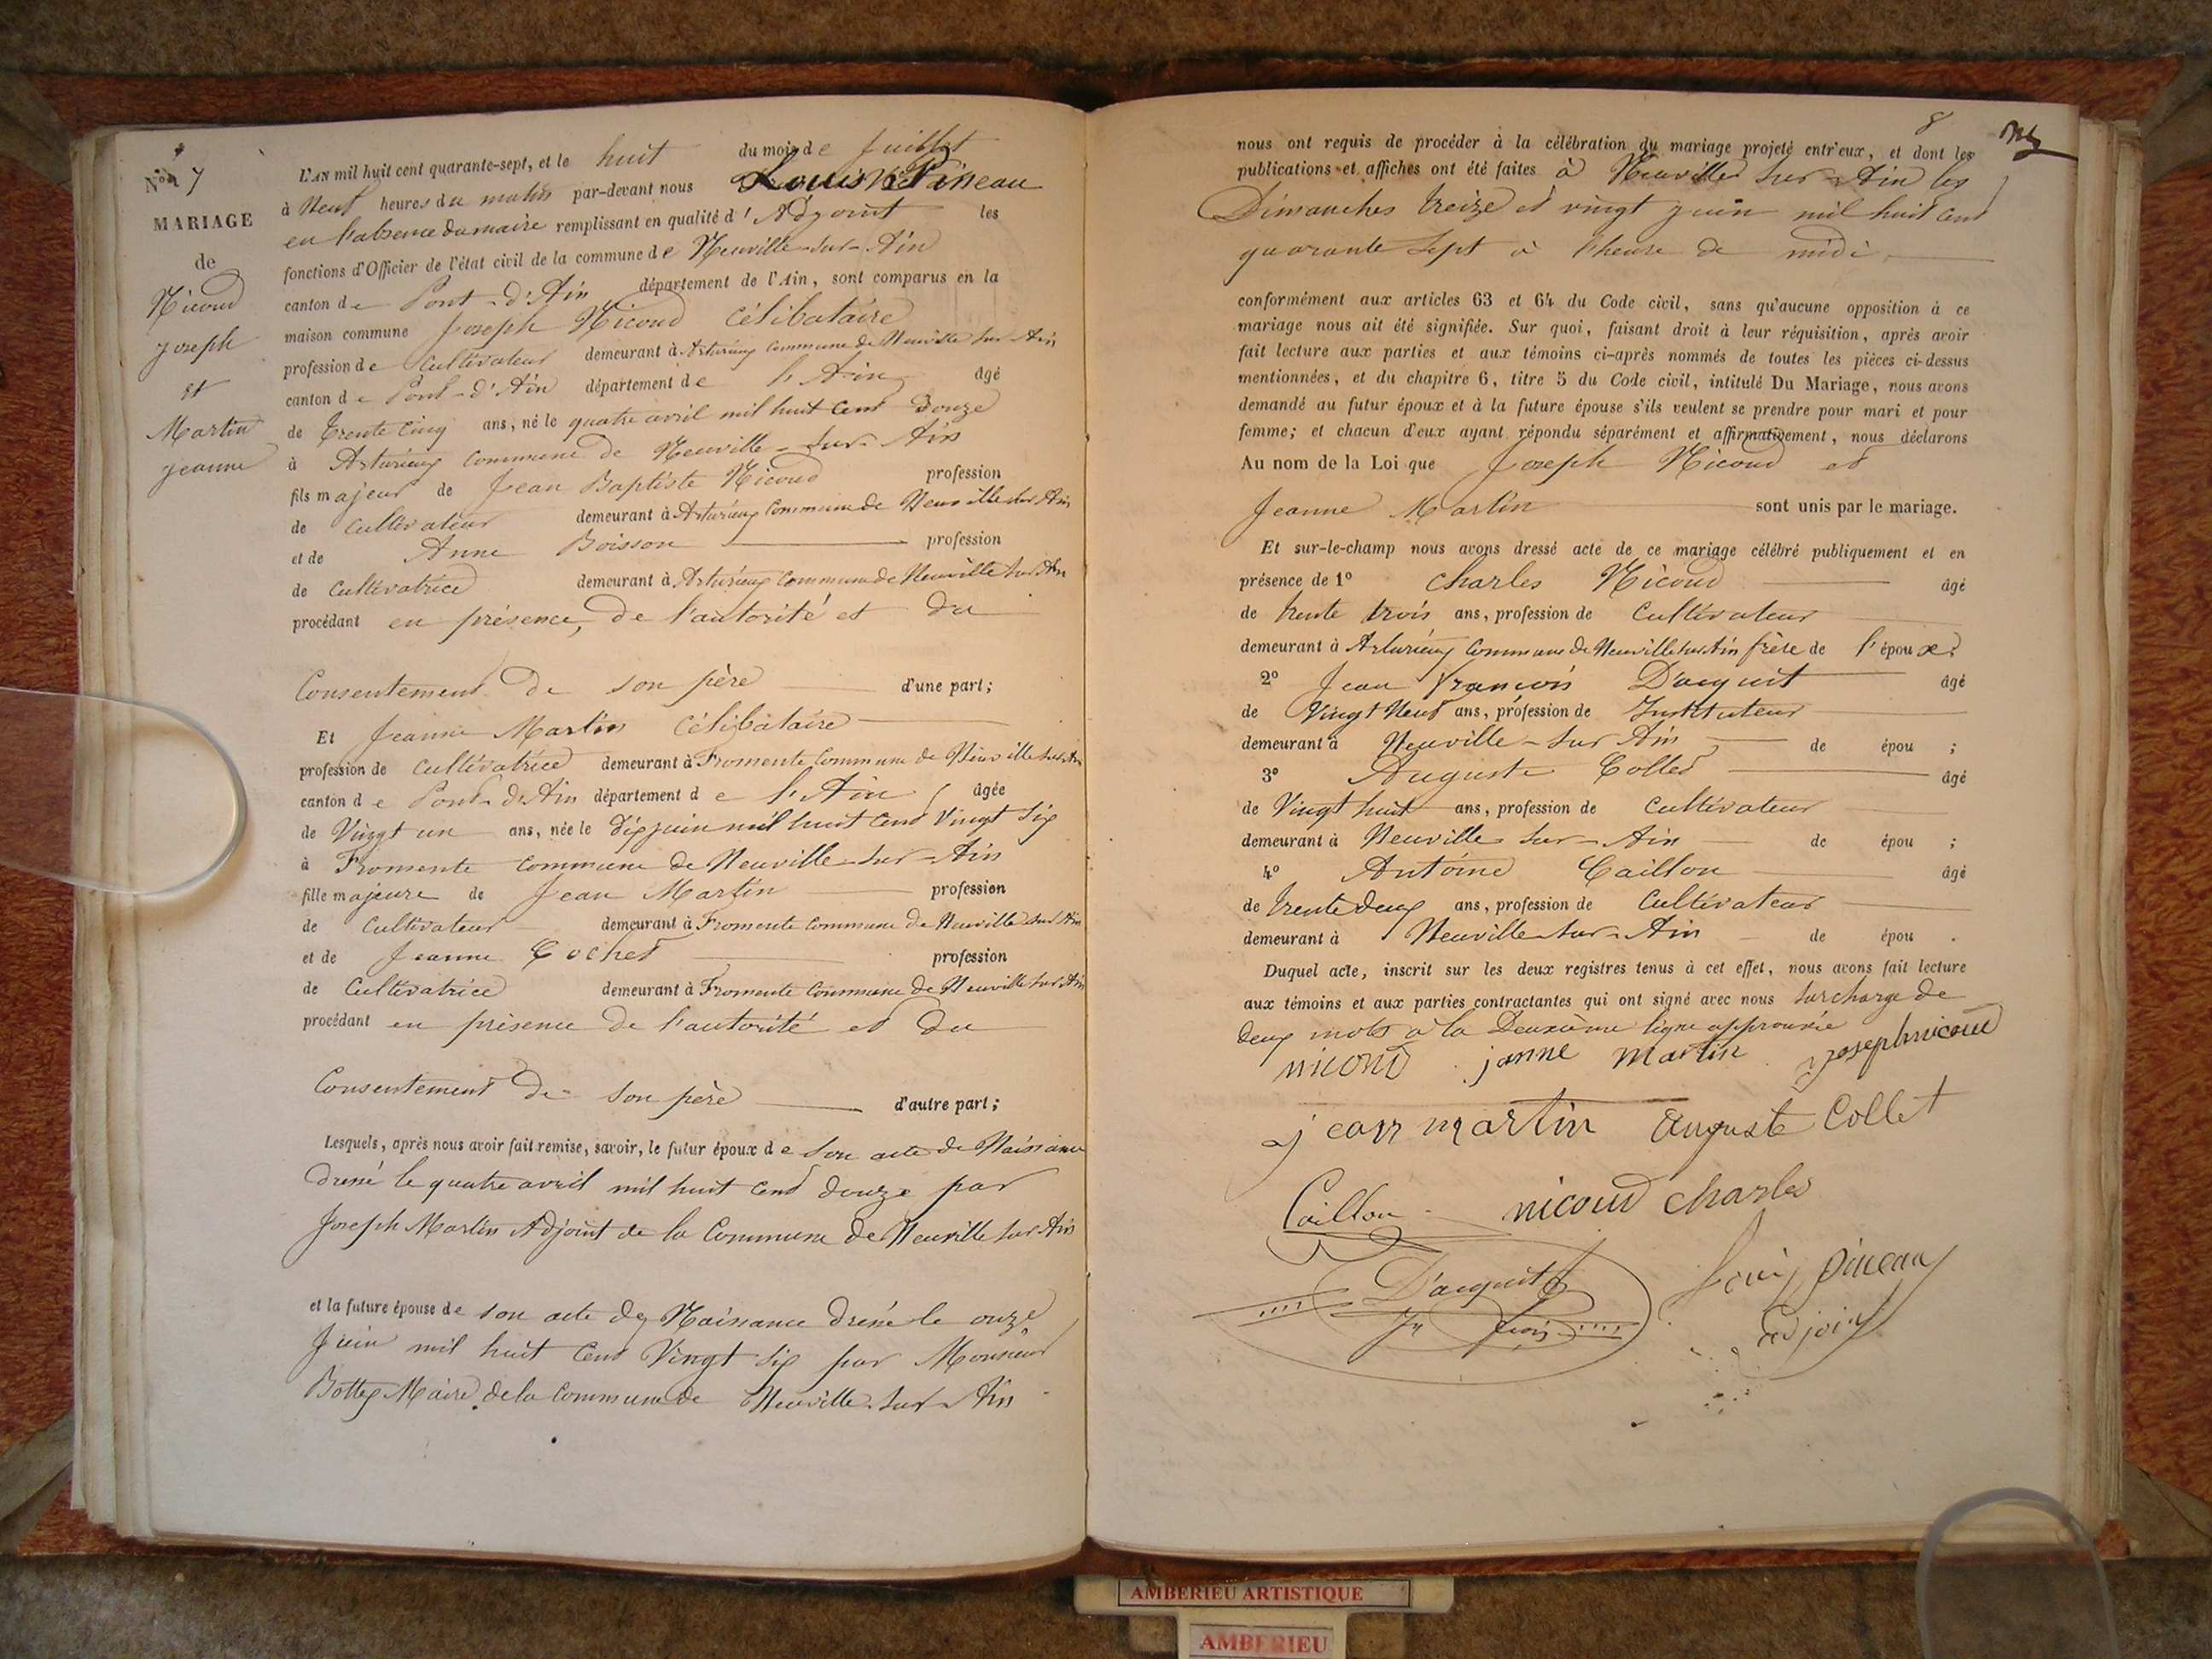 N.º 7
MARIAGE
de
Nicoud
Joseph
et
Martin
Jeanne
L'AN mil huit cent quarante-sept, et le huit du mois de Juillet
à Neuf heures du matin par-devant nous Louis Pineau
en l'absence du maire remplissant en qualité d'Adjoint les
fonctions d'Officier de l'état civil de la commune de Neuville-sur-Ain
canton de Pont-d'Ain département de l'Ain, sont comparus en la
maison commune Joseph Nicoud Célibataire
profession de Cultivateur demeurant à Arturieux Commune de Neuville sur Ain
canton de Pont-d'Ain département de l'Ain âgé
de Trente Cinq ans, né le quatre avril mil huit cent Douze
à Arturieux Commune de Neuville-sur-Ain
fils majeur de Jean Baptiste Nicoud profession
de Cultivateur demeurant à Arturieux Commune de Neuville sur Ain
et de Anne Boisson profession
de Cultivatrice demeurant à Arturieux Commune de Neuville sur Ain
procédant en présence, de l'autorité et du
Consentement de son père d'une part;
Et Jeanne Martin Célibataire
profession de Cultivatrice demeurant à Fromente Commune de Neuville sur Ain
canton de Pont-d'Ain département de l'Ain âgée
de Vingt un ans, née le dix juin mil huit Cent Vingt Six
à Fromente Commune de Neuville-sur-Ain
fille majeure de Jean Martin profession
de Cultivateur demeurant à Fromente Commune de Neuville sur Ain
et de Jeanne Cochet profession
de Cultivatrice demeurant à Fromente Commune de Neuville sur Ain
procédant en présence de l'autorité et du
Consentement de son père d'autre part;
Lesquels, après nous avoir fait remise, savoir, le futur époux de Son acte de Naissance
dressé le quatre avril mil huit Cent douze par
Joseph Martin Adjoint de la Commune de Neuville sur Ain
et la future épouse de son acte de Naissance dressé le onze
Juin mil huit Cent Vingt Six par Monsieur
Bottex Maire de la Commune de Neuville-sur-Ain
8
nous ont requis de procéder à la célébration du mariage projeté entr'eux, et dont les
publications et affiches ont été faites à Neuville sur-Ain les
Dimanches treize et vingt juin mil huit Cent
quarante Sept à l'heure de midi
conformément aux articles 63 et 64 du Code civil, sans qu'aucune opposition à ce
mariage nous ait été signifiée. Sur quoi, faisant droit à leur réquisition, après avoir
fait lecture aux parties et aux témoins ci-après nommés de toutes les pièces ci-dessus
mentionnées, et du chapitre 6, titre 5 du Code civil, intitulé Du Mariage, nous avons
demandé au futur époux et à la future épouse s'ils veulent se prendre pour mari et pour
femme; et chacun d'eux ayant répondu séparément et affirmativement, nous déclarons
Au nom de la Loi que Joseph Nicoud et
Jeanne Martin sont unis par le mariage.
Et sur-le-champ nous avons dressé acte de ce mariage célébré publiquement et en
présence de 1º Charles Nicoud âgé
de trente trois ans, profession de Cultivateur
demeurant à Arturieux Commune de Neuville sur Ain frère de l'époux;
2º Jean François D'acquit âgé
de Vingt Neuf ans, profession de Instituteur
demeurant à Neuville-sur Ain de épou ;
3º Auguste Collet âgé
de Vingt huit ans, profession de Cultivateur
demeurant à Neuville sur-Ain de épou ;
4º Antoine Caillon âgé
de trente deux ans, profession de Cultivateur
demeurant à Neuville-sur-Ain de épou .
Duquel acte, inscrit sur les deux registres tenus à cet effet, nous avons fait lecture
aux témoins et aux parties contractantes qui ont signé avec nous Surcharge de
deux mots à la Deuxième ligne approuvée
nicoud janne Martin joseph nicoud
jean martin auguste Collet
Caillon nicoud charles
D'acquit louis pineau
Jn frois adjoint
AMBERIEU ARTISTIQUE
AMBERIEU